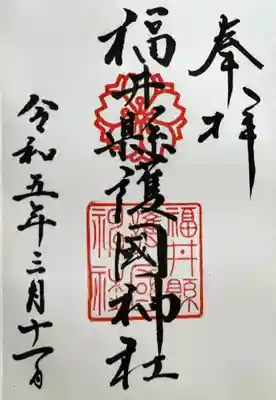 奉拝
福井縣護國神社
福井縣護國神社
令和五年三月十一日